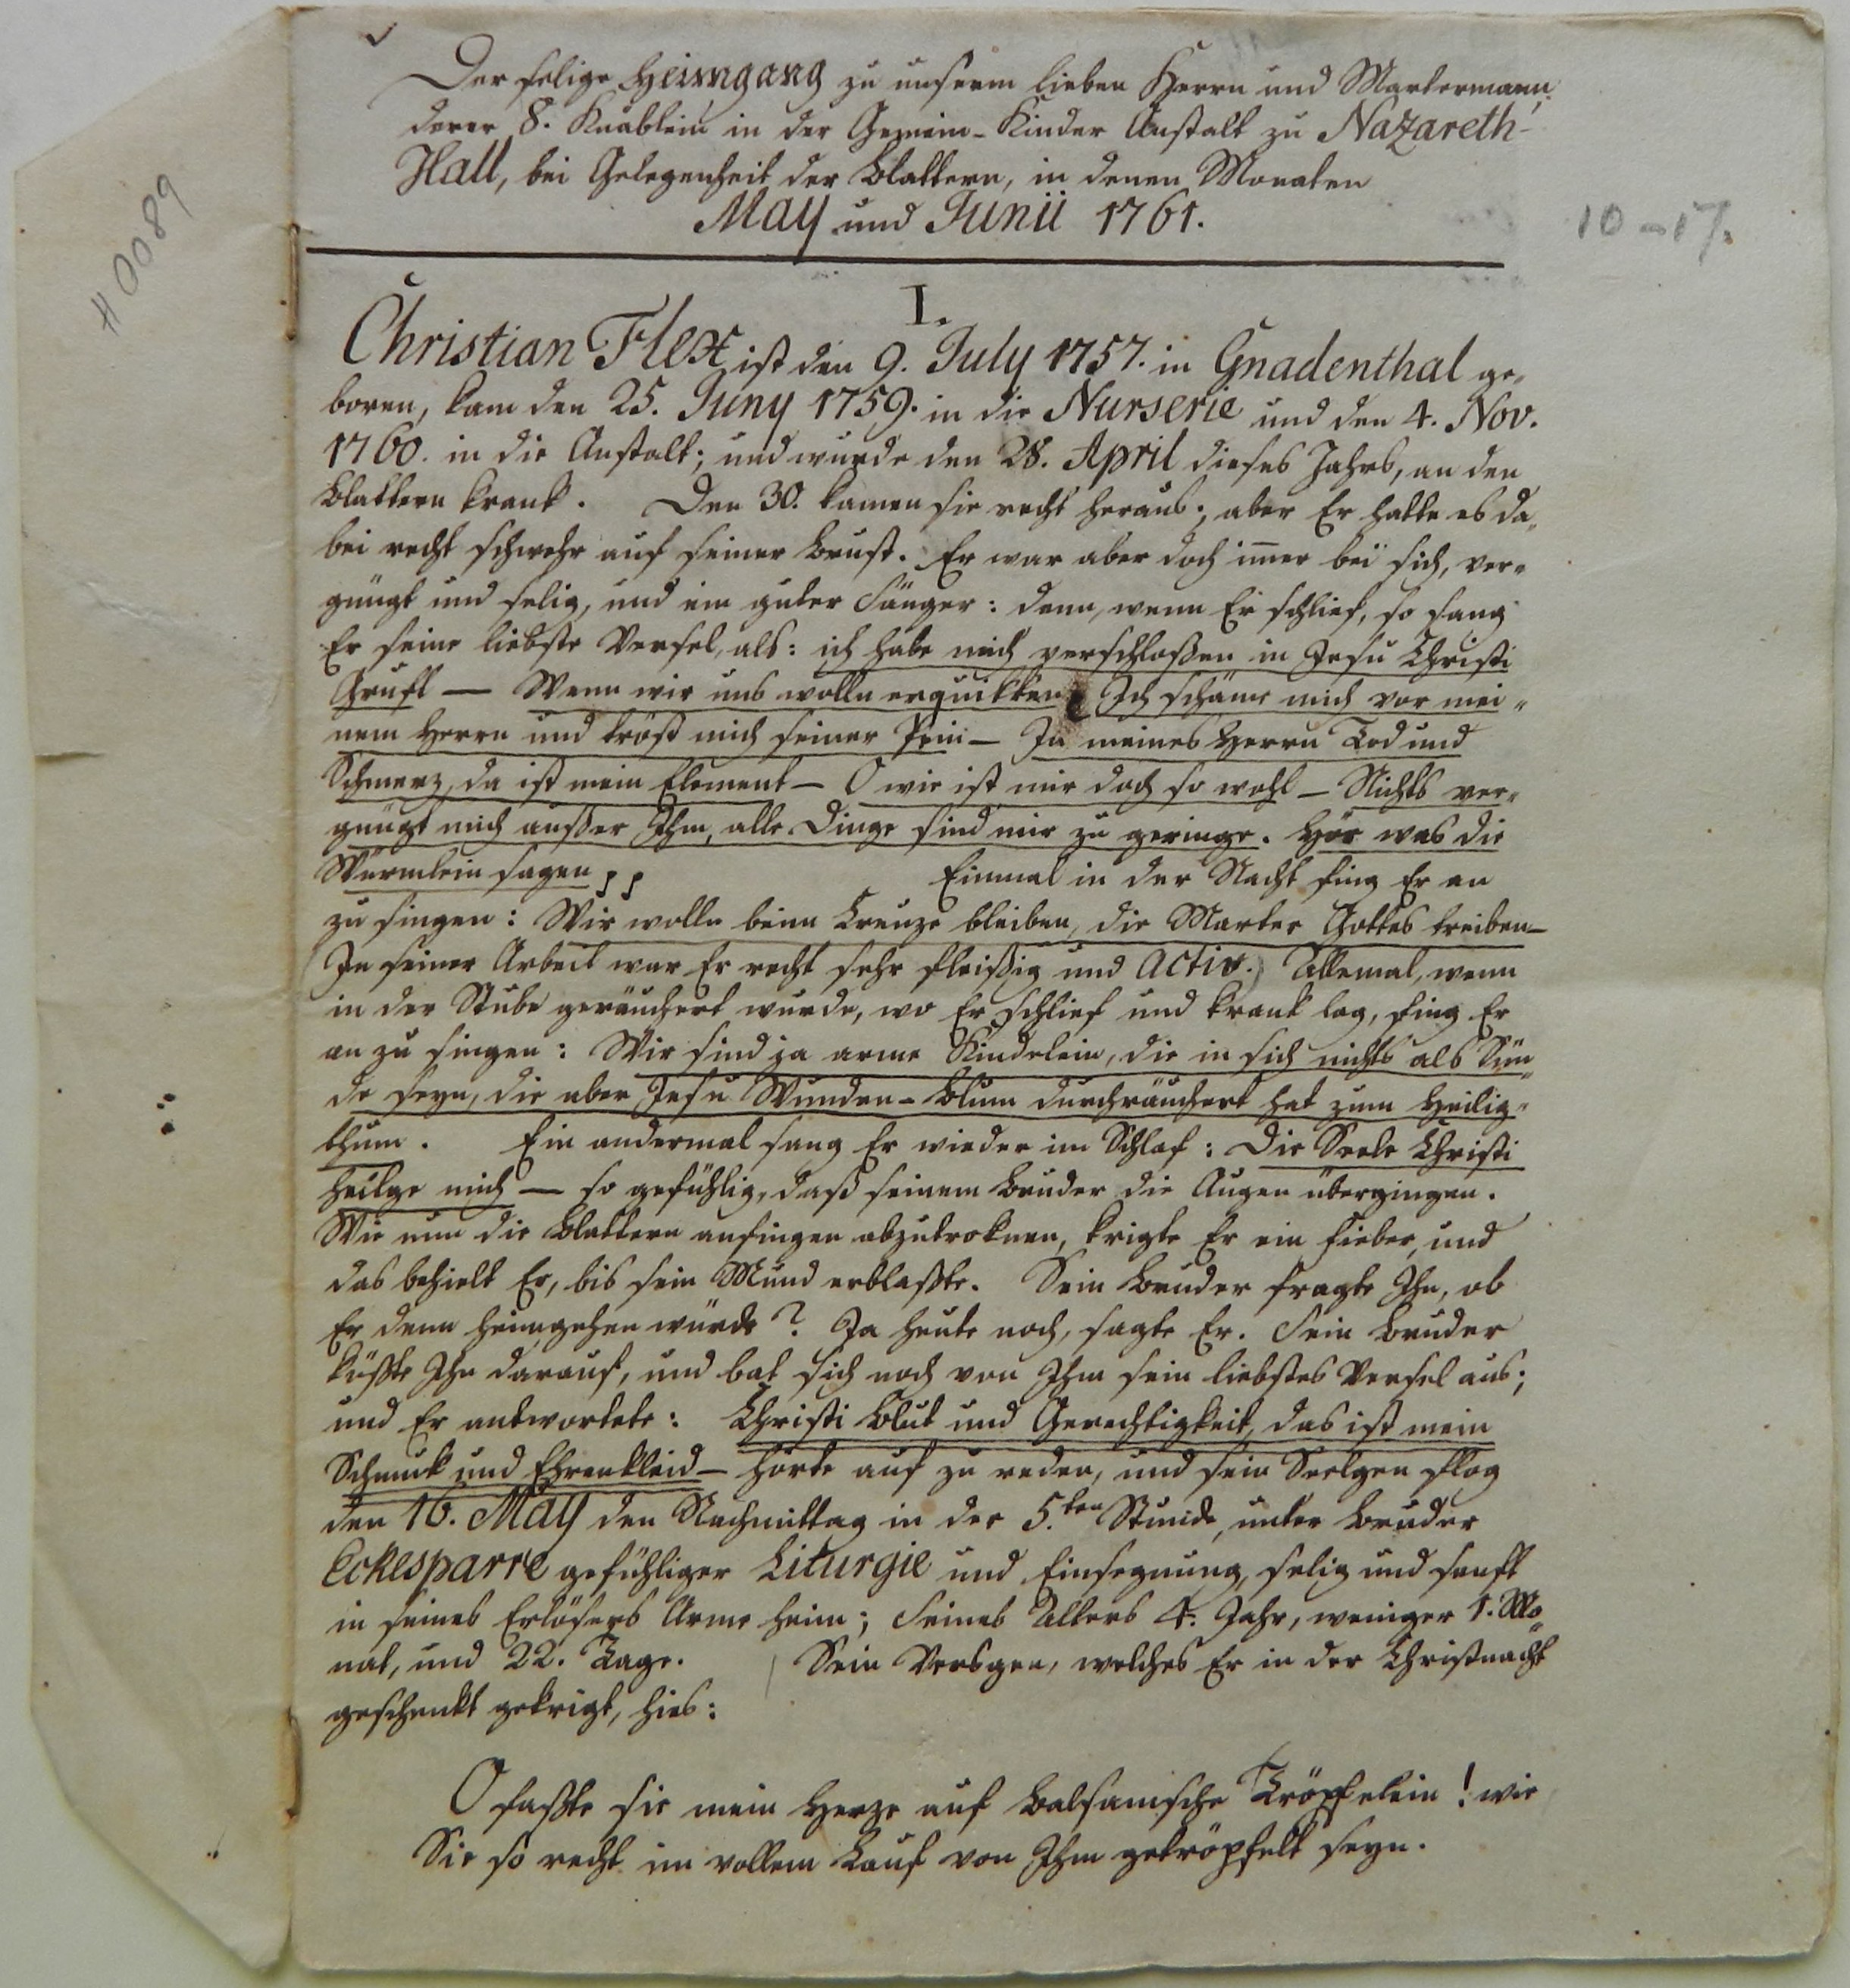 Der selige Heimgang zu unserm lieben Herrn und Martermann,
derer 8. Knäblein in der Gemein-Kinder Anstalt zu Nazareth-
Hall, bei Gelegenheit der Blattern, in denen Monaten
May und Junii 1761.
H 0089
10-17.
I.
Christian Flex ist den 9. July 1757. in Gnadenthal ge-
boren, kam den 25. Juny 1759. in die Nurserie und den 4. Nov.
1760. in die Anstalt; und wurde den 28. April dieses Jahrs, an den
Blattern krank. Den 30. kamen sie recht heraus; aber Er hatte es da-
bei recht schwehr auf seiner Brust. Er war aber doch im̅er bei sich, ver-
gnügt und selig, und ein guter Sänger: denn, wenn Er schlief, so sang
Er seine liebste Versel, als: ich habe mich verschloßen in Jesu Christi
Gruft — Wenn wir uns wolln erquikken, Ich schäme mich vor mei-
nem Herrn und tröst mich seiner Pein — In meines Herrn Tod und
Schmerz, da ist mein Element — O wie ist mir doch so wohl — Nichts ver-
gnügt mich außer Ihm, alle Dinge sind mir zu geringe. Hör was die
Würmlein sagen pp Einmal in der Nacht fing Er an
zu singen: Wir wolln beim Creuze bleiben, die Marter Gottes treiben —
In seiner Arbeit war Er recht sehr fleißig und activ. Allemal, wenn
in der Stube geräuchert wurde, wo Er schlief und krank lag, fing Er
an zu singen: Wir sind ja arme Kindelein, die in sich nichts als Sün-
de seyn, die aber Jesu Wunden-Blum durchräuchert hat zum Heilig-
thum. Ein andermal sang Er wieder im Schlaf: Die Seele Christi
heilge mich — so gefühlig, daß seinem Bruder die Augen übergingen.
Wie nun die Blattern anfingen abzutroknen, krigte Er ein Fieber, und
das behielt Er, bis sein Mund erblaßte. Sein Bruder fragte Ihn, ob
Er denn heimgehen würde? Ja heute noch, sagte Er. Sein Bruder
küßte Ihn darauf, und bat sich noch von Ihm sein liebstes Versel aus;
und Er antwortete: Christi Blut und Gerechtigkeit, das ist mein
Schmuk und Ehrenkleid — hörte auf zu reden, und sein Seelgen flog
den 16. May den Nachmittag in der 5.ten Stunde, unter Bruder
Eckesparre gefühliger Liturgie und Einsegnung, selig und sanft
in seines Erlösers Arme heim; Seines Alters 4. Jahr, weniger 1. Mo-
nat, und 22. Tage. Sein Versgen, welches Er in der Christnacht
geschenkt gekrigt, hies:
O faßte sie mein Herze auf Balsamsche Tröpfelein! wie
Sie so recht im vollem Lauf von Ihm getröpfelt seyn.